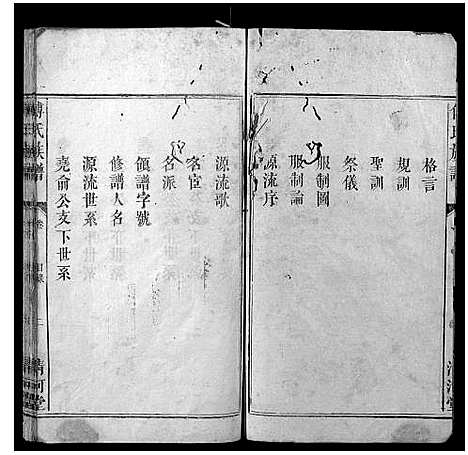 格言
規訓
聖訓
祭儀
服制圖
服制論
源流序
源流歌
名宦
名派
領譜字號
修譜人名
源流世系
堯俞公支下世系
傅氏族譜
卷
目錄
二
清河堂